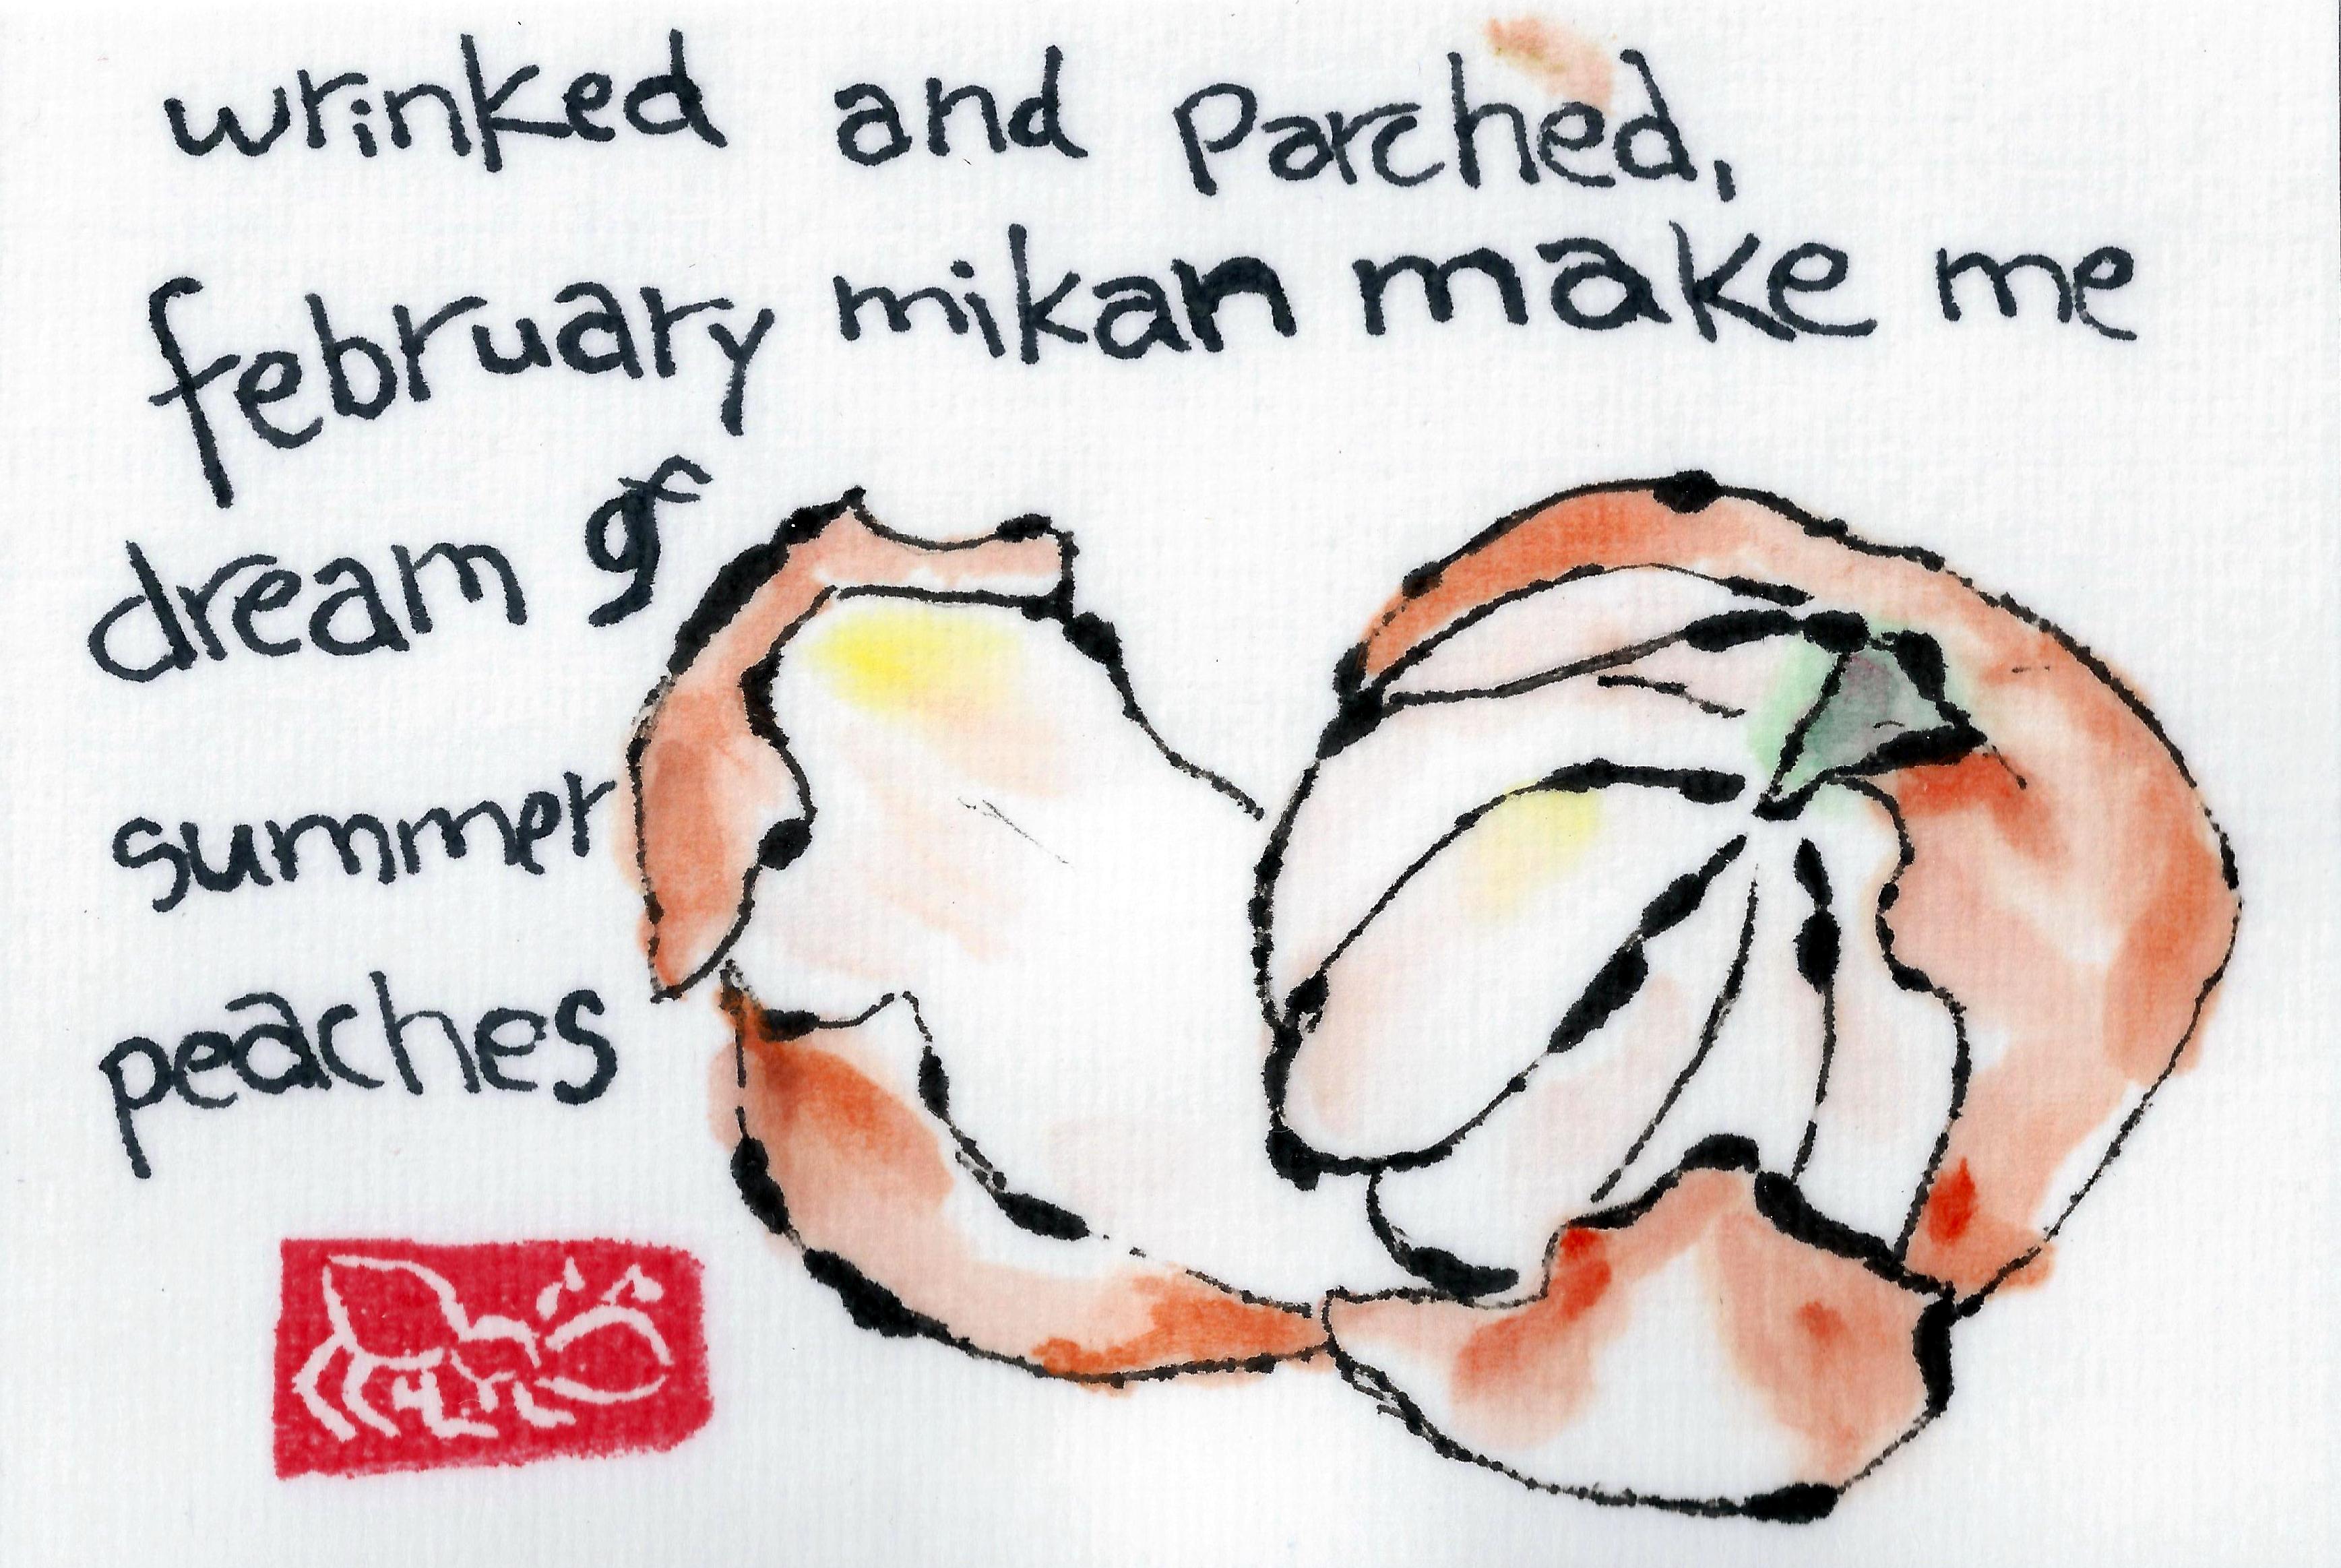 wrinked and Parched,
february mikan make me
dream of
summer
peaches